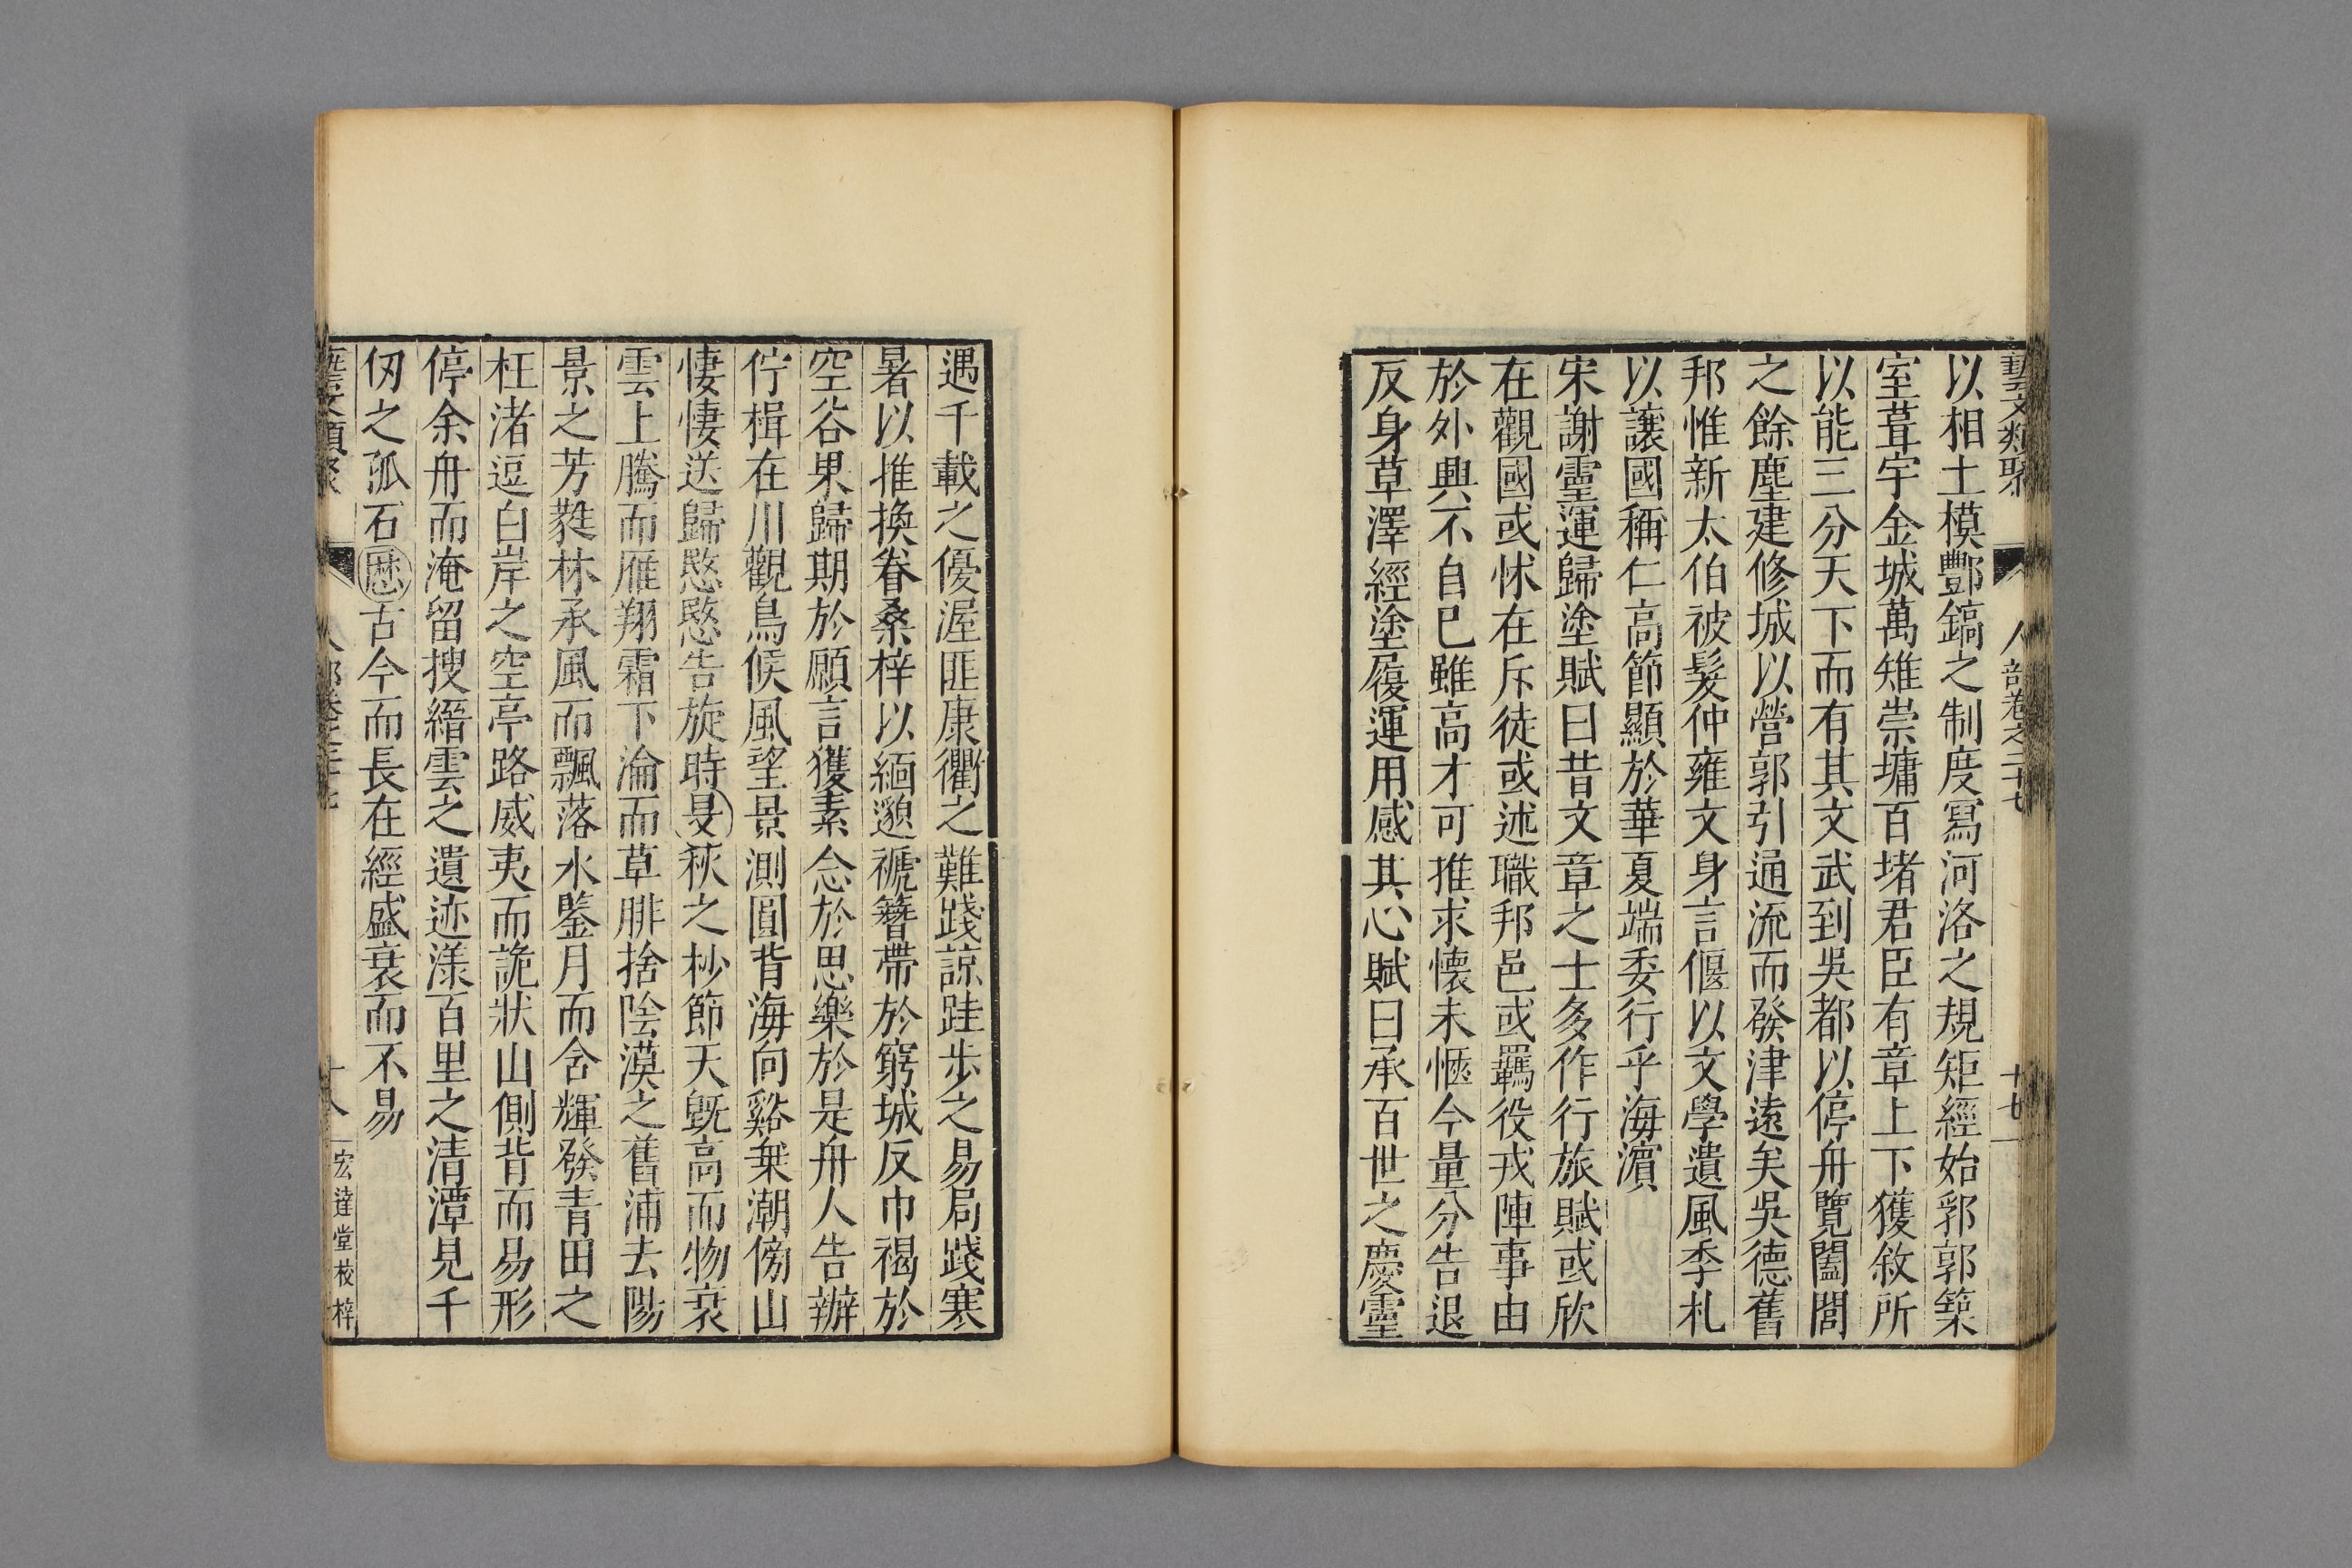 藝文類聚 人部卷之二十七 十七
以相土模酆鎬之制度寫河洛之規矩經始郛郭築
室葺宇金城萬雉崇墉百堵君臣有章上下獲敘所
以能三分天下而有其文武到吳都以停舟覽闔閭
之餘塵建修城以營郭引通流而發津遠矣吳德舊
邦惟新太伯被髮仲雍文身言偃以文學遺風季札
以讓國稱仁高節顯於華夏端委行乎海濵
宋謝靈運歸塗賦曰昔文章之士多作行旅賦或欣
在觀國或怵在斥徒或述職邦邑或羈役戎陣事由
於外興不自巳雖高才可推求懷未愜今量分告退
反身草澤經塗履運用感其心賦曰承百世之慶靈
遇千載之優渥匪康衢之難踐諒跬歩之易局踐寒
暑以推換眷桑梓以緬邈褫簪帶於窮城反巾褐於
空谷果歸期於願言獲素念於思樂於是舟人告辦
佇楫在川觀鳥候風望景測圓背海向谿乗潮傍山
悽悽送歸愍愍告旋時旻萩之杪節天旣高而物衰
雲上騰而雁翔霜下淪而草腓捨陰漠之舊浦去陽
景之芳蕤林承風而飄落水鑒月而含輝發青田之
枉渚逗白岸之空亭路威夷而詭狀山側背而易形
停余舟而淹留搜縉雲之遺迹漾百里之清潭見千
仭之孤石歴古今而長在經盛衰而不易
藝文類聚 人部卷之二十七 十八 宏達堂校梓